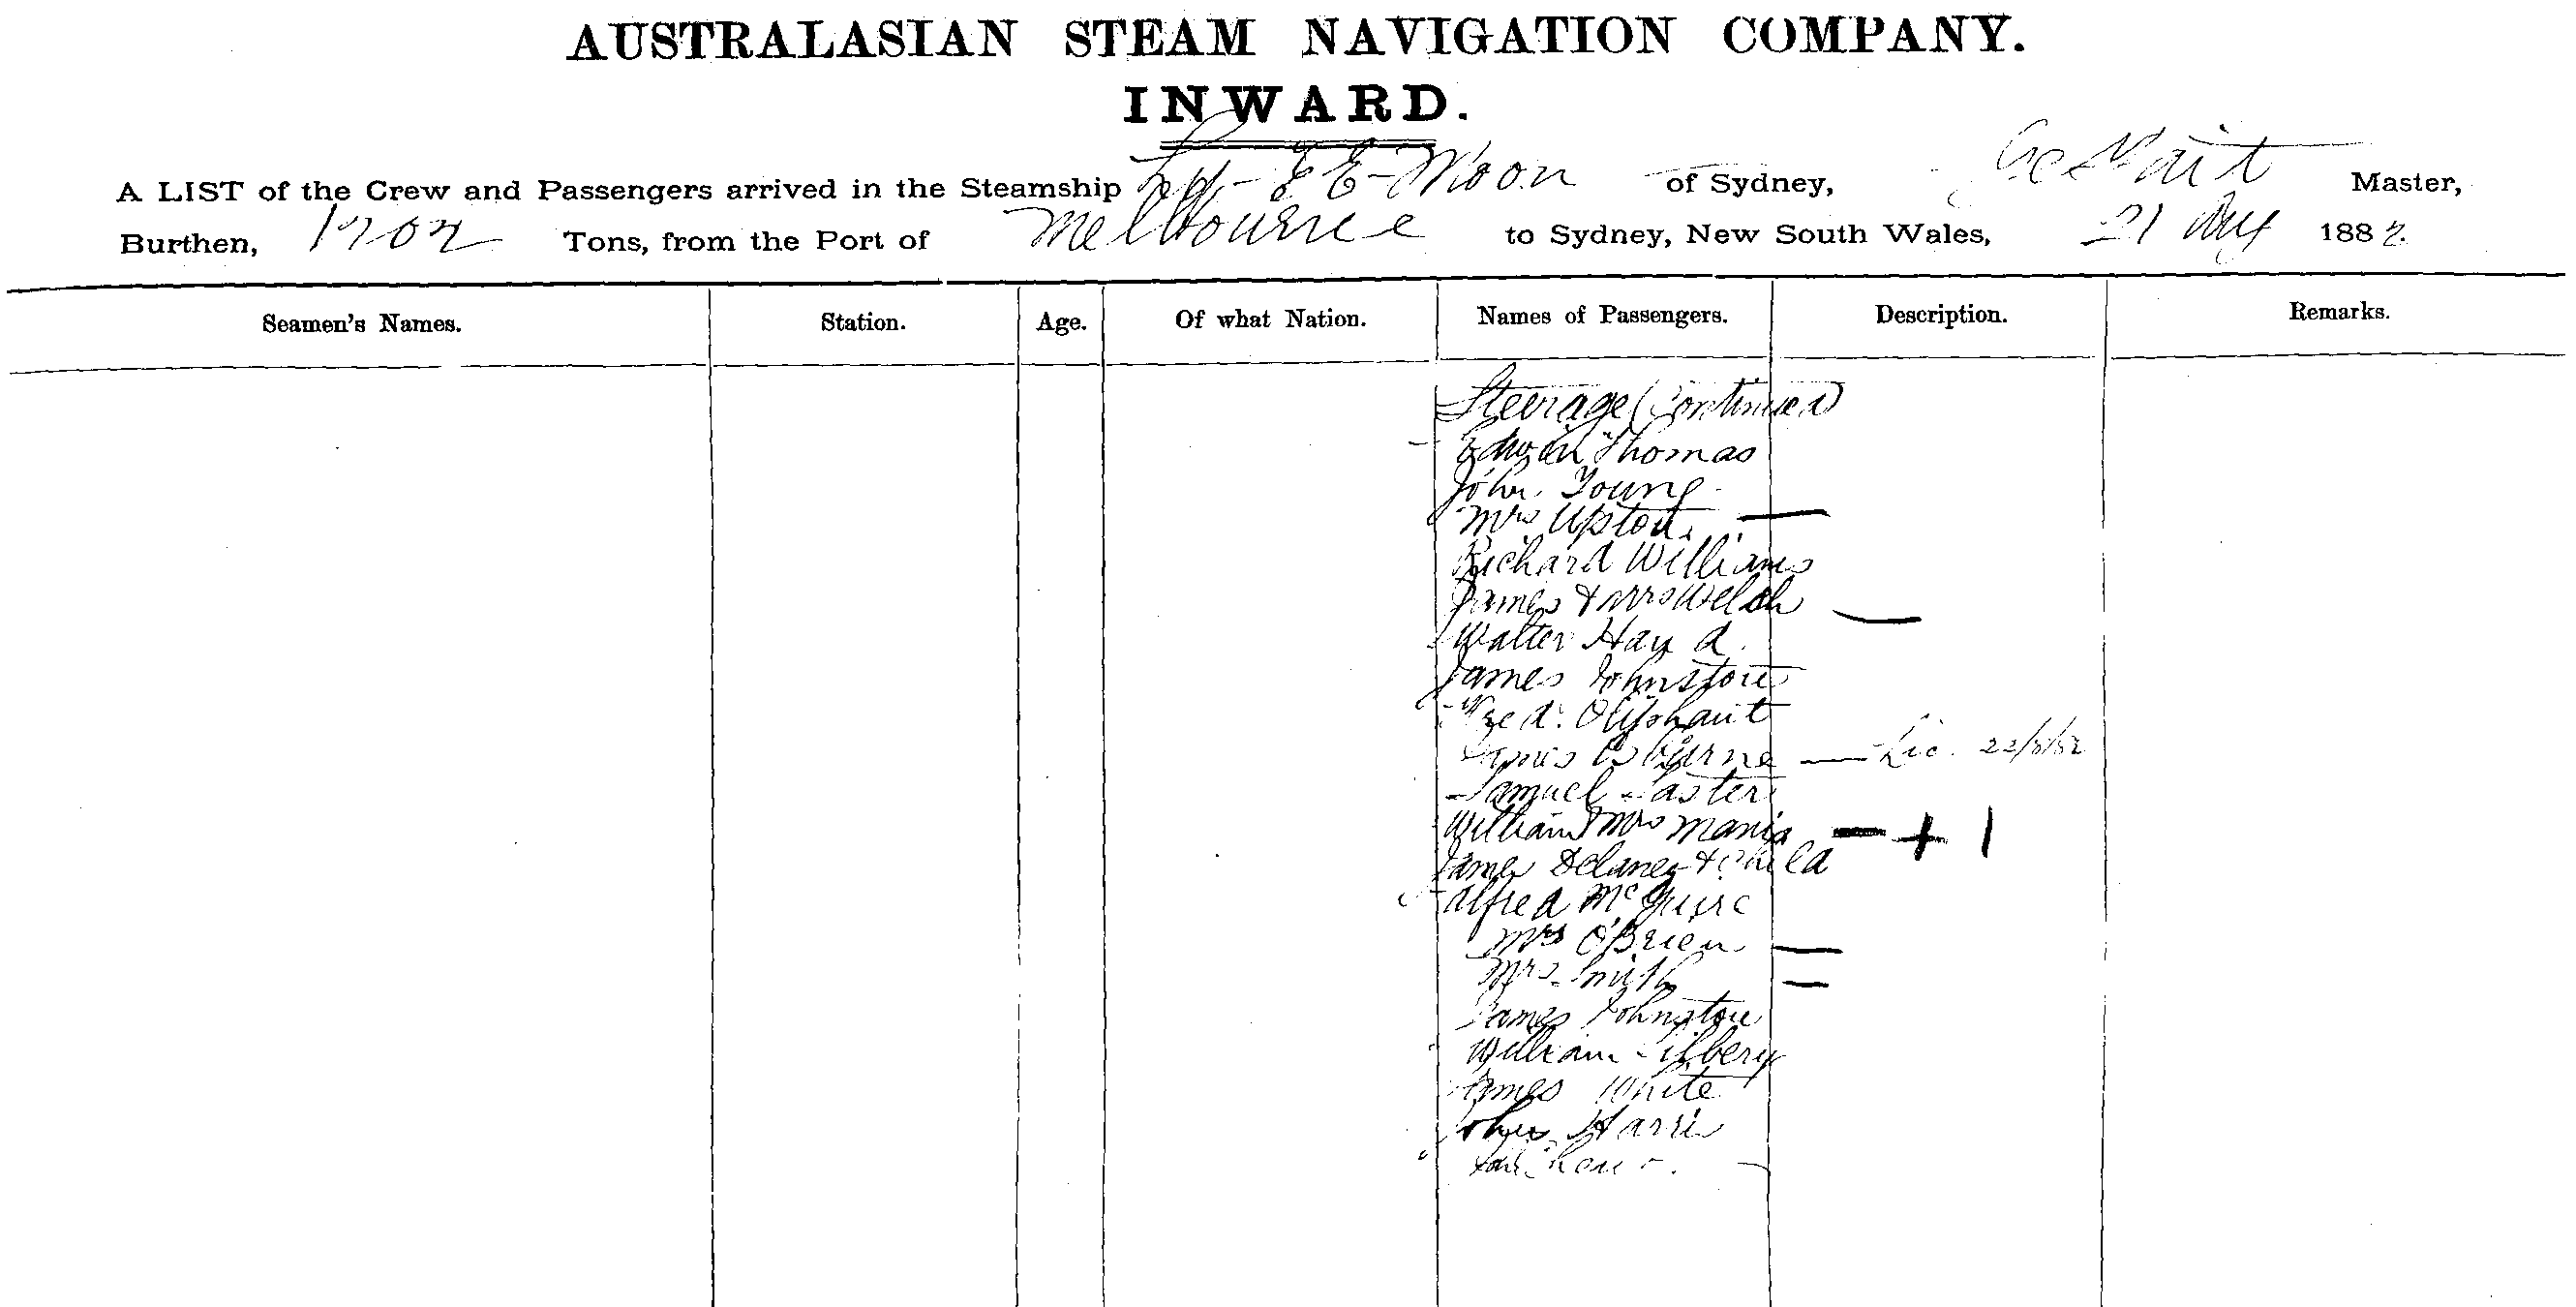 AUSTRALASIAN STEAM NAVIGATION COMPANY.
INWARD.
A LIST of the Crew and Passengers arrived in the Steamship Ly-EE-Moon of Sydney, Master,
Burthen, 1202 Tons, from the Port of Melbourne to Sydney, New South Wales, 21 Aug 1882.
Seamen's Names. Station. Age. Of what Nation. Names of Passengers. Description. Remarks.
Steerage (Continued)
Edwin Thomas
John Young
Mrs Upton
Richard Williams
James & Mrs Welsh
Walter Hay
James Johnstone
Fred. Oliphant
James Osburne — 22/8/82
Samuel
William & Mrs — + 1
James Delaney & Child
Alfred McGuire
Mrs O'Brien
Mrs Smith
James Johnstone
William
James White
John Harris